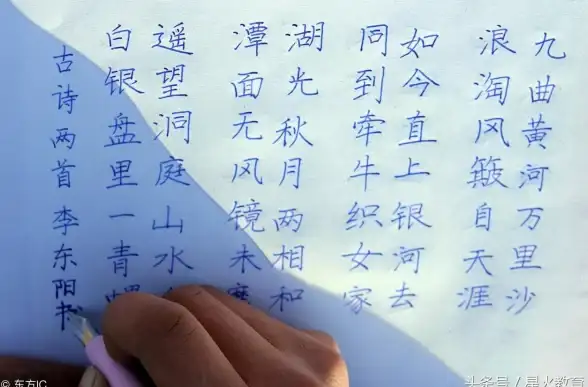 九曲黄河万里沙
浪淘风簸自天涯
如今直上银河去
同到牵牛织女家
湖光秋月两相和
潭面无风镜未磨
遥望洞庭山水
白银盘里一青螺
古诗两首 李东阳书
© 东方IC